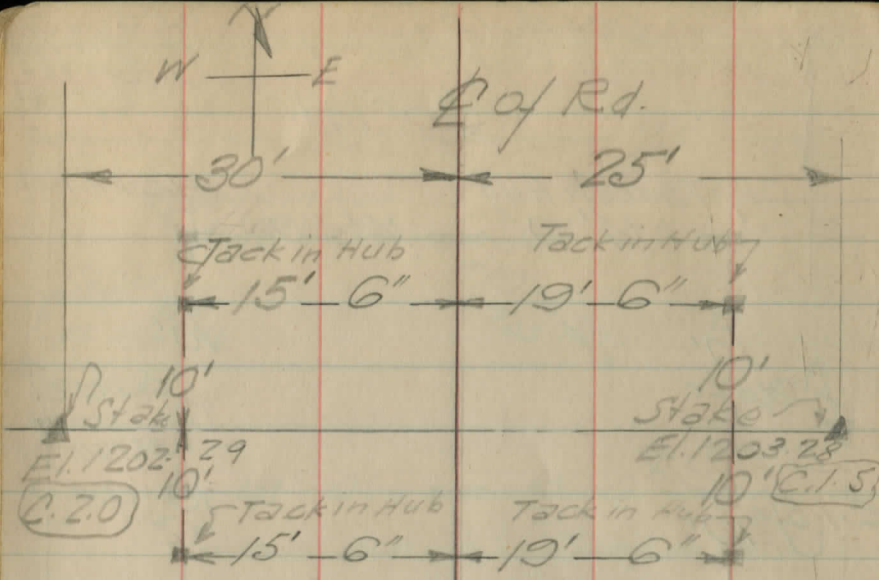 W E
℄ of Rd.
30' 25'
Tack in Hub Tack in Hub
15' 6" 19' 6"
10' 10'
Stake Stake
El. 1202.29 El. 1203.28
10' 10'
C. 2.0 C. 1.5
Tack in Hub Tack in Hub
15' 6" 19' 6"